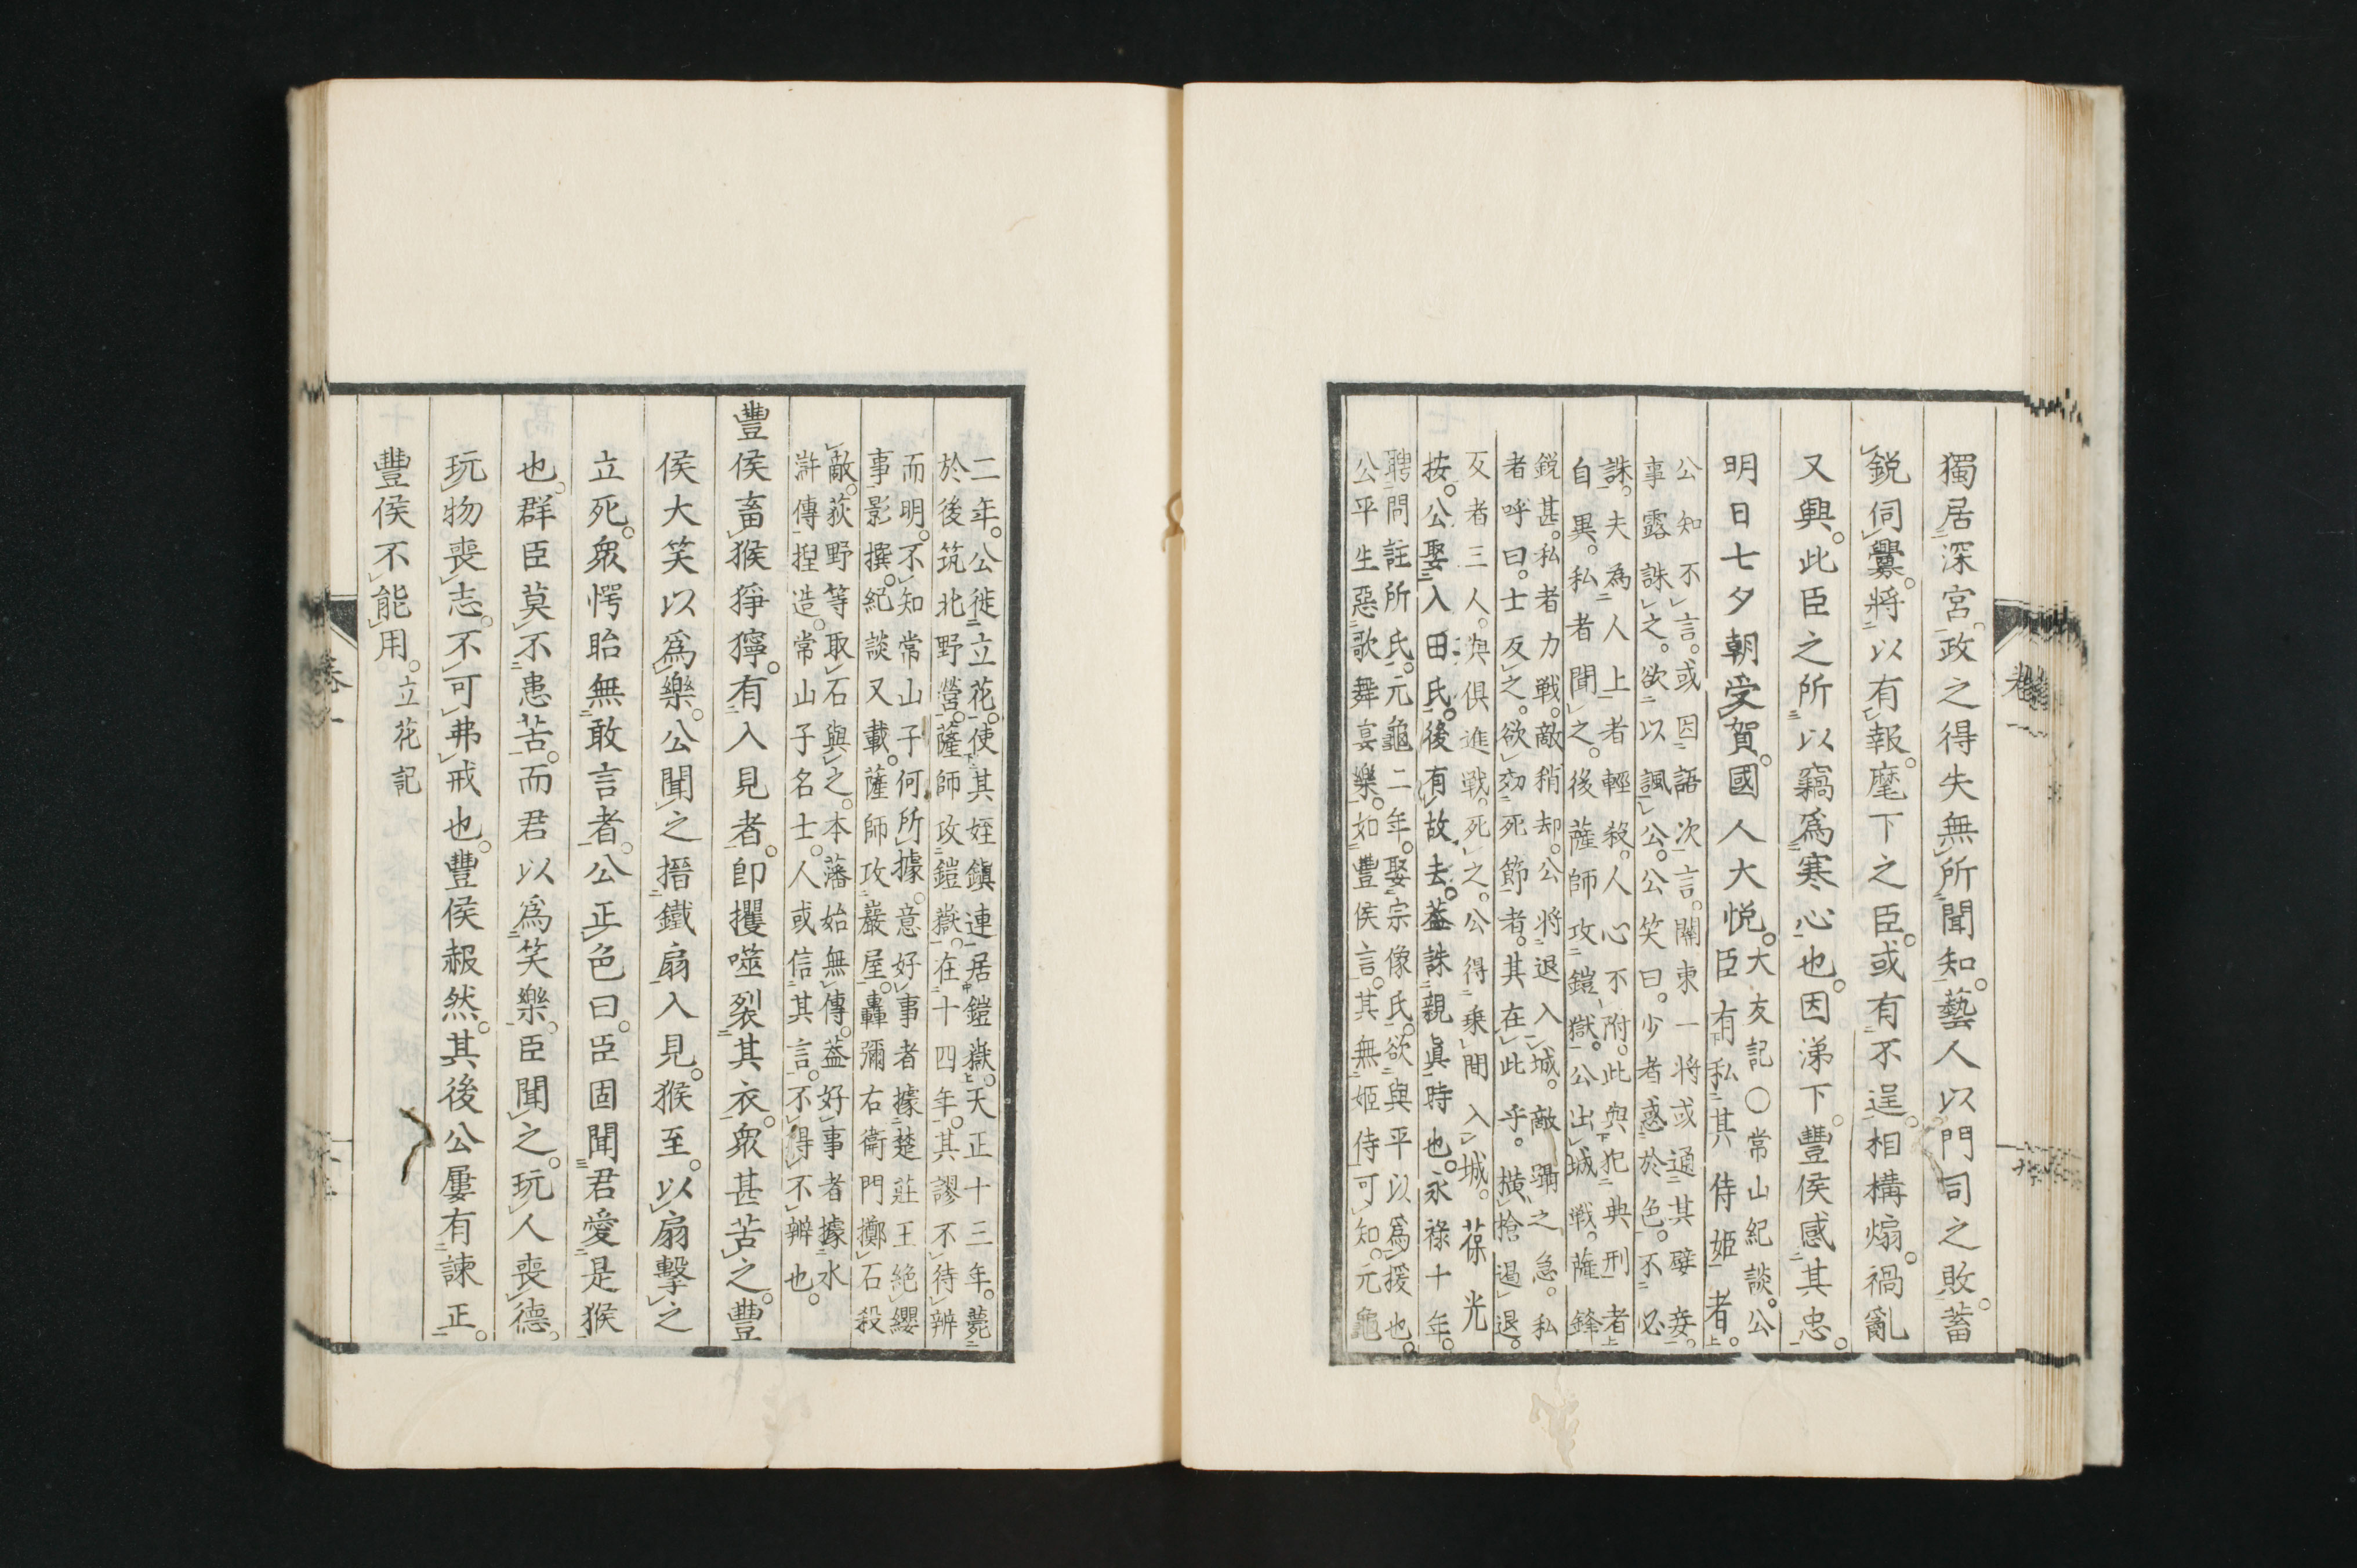 獨居深宮。政之得失無所聞知。藝人以門司之敗。蓄
鋭伺釁。將以有報。麾下之臣。或有不逞。相構煽。禍亂
又興。此臣之所以竊爲寒心也。因涕下。豐侯感其忠。
明日七夕朝受賀。國人大悅。
大友記〇常山紀談。公
臣有私其侍姬者。
公知不言。或因語次言。關東一將或通其嬖妾。
事露誅之。欲以諷公。公笑曰。少者惑於色。不必
誅。夫為人上者輕殺。人心不附。此與犯典刑者
自異。私者聞之。後薩師攻鎧嶽。公出城戰。薩鋒
鋭甚。私者力戰。敵稍却。公將退入城。敵躡之急。私
者呼曰。士反之。欲効死節者。其在此乎。横槍遏退。
反者三人。與俱進戰。死之。公得乘間入城。葆光
按。公娶入田氏。後有故去。蓋誅親眞時也。永祿十年。
聘問註所氏。元龜二年。娶宗像氏。欲與平以爲援也。
公平生惡歌舞宴樂。如豐侯言。其無姬侍可知。元龜
二年。公徙立花。使其姪鎭連居鎧嶽。天正十三年。薨
於後筑北野營。薩師攻鎧嶽。在十四年。其謬不待辨
而明。不知常山子何所據。意好事者據楚莊王絕纓
事影撰。紀談又載。薩師攻巖屋。轟彌右衞門擲石殺
敵。荻野等取石與之。本藩始無傳。蓋好事者據水
滸傳捏造。常山子名士。人或信其言。不得不辨也。
豐侯畜猴猙獰。有入見者。卽攫噬裂其衣。衆甚苦之。豐
侯大笑以爲樂。公聞之搢鐵扇入見。猴至。以扇擊之
立死。衆愕眙無敢言者。公正色曰。臣固聞君愛是猴
也。群臣莫不患苦。而君以爲笑樂。臣聞之。玩人喪德。
玩物喪志。不可弗戒也。豐侯赧然。其後公屢有諫正。
豐侯不能用。立花記
卷一